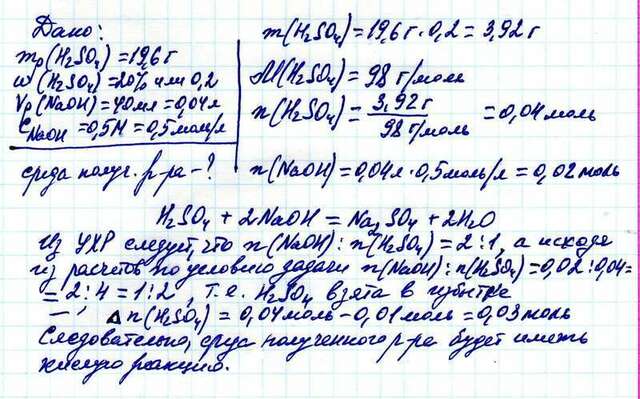 Дано:
m р (H₂SO₄) = 19,6 г
ω (H₂SO₄) = 20% или 0,2
Vр (NaOH) = 40 мл = 0,04 л
C NaOH = 0,5М = 0,5 моль/л
среда получ. р-ра - ?
m(H₂SO₄) = 19,6 г · 0,2 = 3,92 г
M(H₂SO₄) = 98 г/моль
n(H₂SO₄) = 3,92 г / 98 г/моль = 0,04 моль
n(NaOH) = 0,04 л · 0,5 моль/л = 0,02 моль
H₂SO₄ + 2NaOH = Na₂SO₄ + 2H₂O
Из УХР следует, что n(NaOH) : n(H₂SO₄) = 2:1, а исходя
из расчетов по условию задачи n(NaOH) : n(H₂SO₄) = 0,02 : 0,04 =
= 2:4 = 1:2, т.е. H₂SO₄ взята в избытке
Δ n(H₂SO₄) = 0,04 моль - 0,01 моль = 0,03 моль
Следовательно, среда полученного р-ра будет иметь
кислую реакцию.